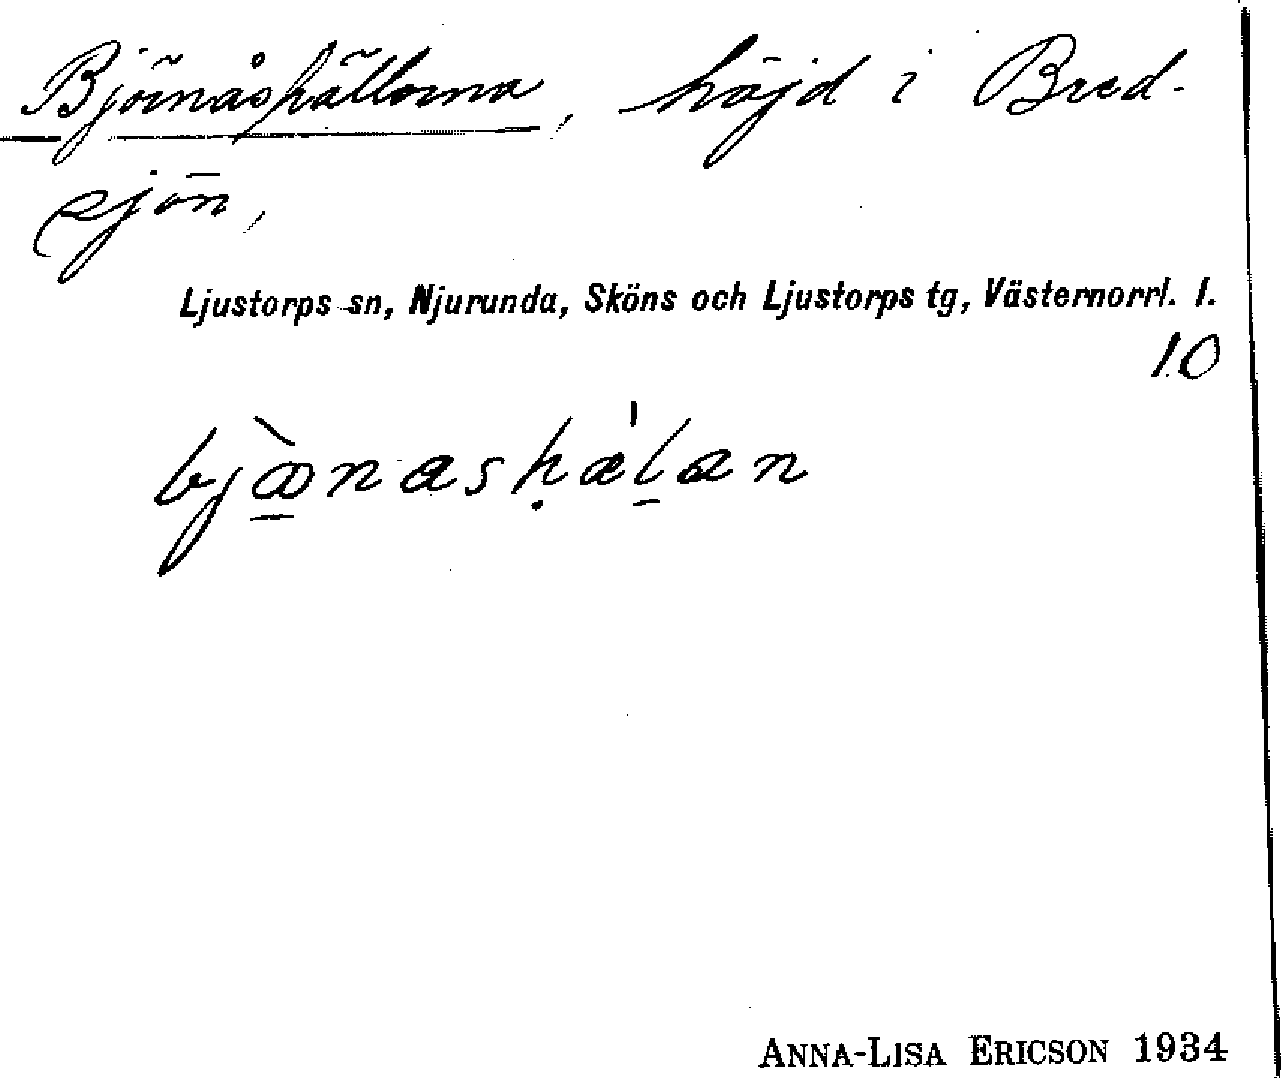 Björnåshällorna, höjd i Bred-
sjön,
Ljustorps sn, Njurunda, Sköns och Ljustorps tg, Västernorrl. l.
10
bjæ̀nashæ'lan
ANNA-LISA ERICSON 1934